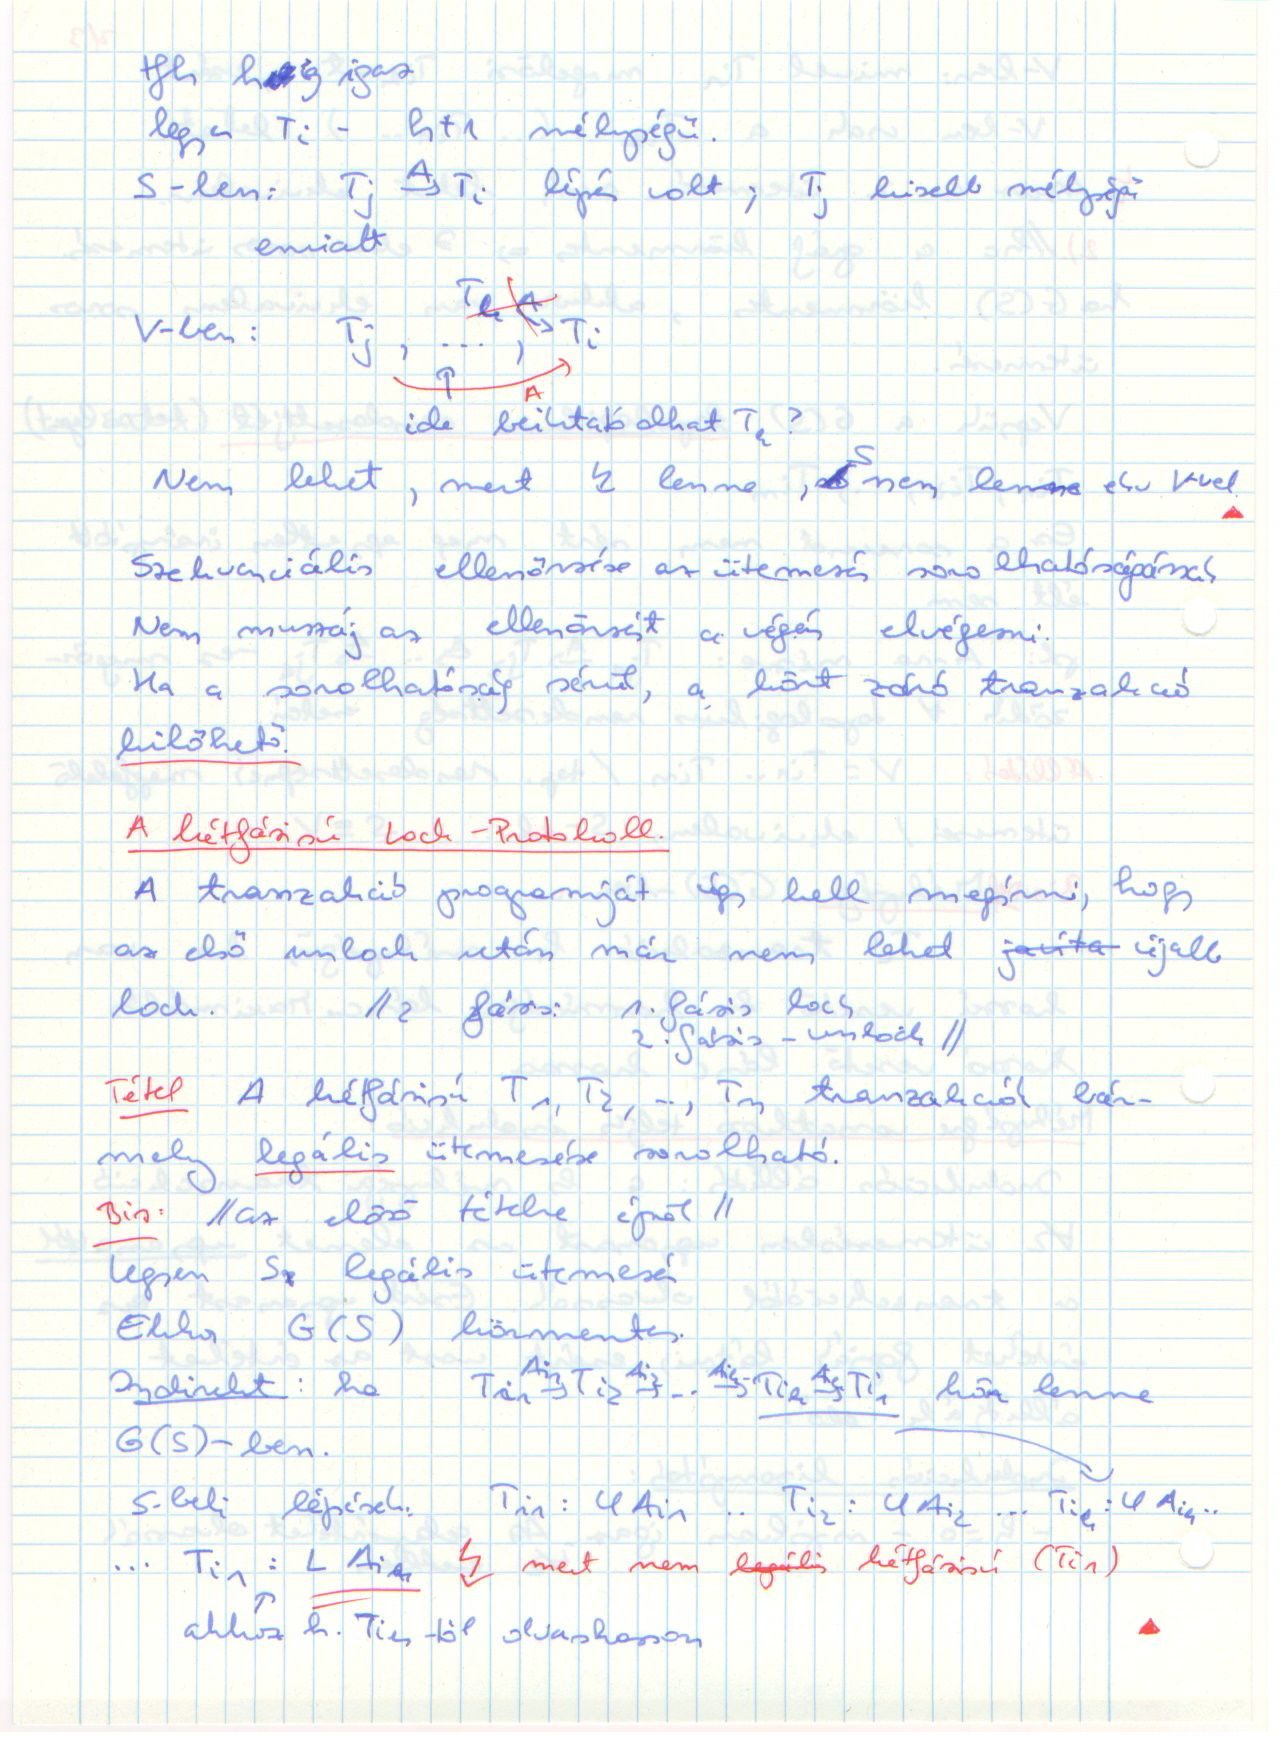 tfh h-ig igaz
legyen Ti - h+1 mélységű.
S-ben: Tj A→ Ti lépés volt; Tj kisebb mélységű
emiatt
Tk A
V-ben: Tj, ..., → Ti
A
ide beiktatódhat Tk?
Nem lehet, mert ↯ lenne, S nem lenne ekv V-vel
Szekvenciális ellenőrzése az ütemezés sorolhatóságának
Nem muszáj az ellenőrzést a végén elvégezni.
Ha a sorolhatóság sérül, a kört záró tranzakció
kilőhető.
A kétfázisú Lock-Protokoll.
A tranzakció programját úgy kell megírni, hogy
az első unlock után már nem lehet újabb
lock. // 2 fázis: 1. fázis lock
2. fázis - unlock //
Tétel A kétfázisú T1, T2, ..., Tn tranzakciók bár-
mely legális ütemezése sorolható.
Biz: // az előző tételre épül //
Legyen S legális ütemezés
Ekkor G(S) körmentes.
Indirekt: ha Ti1 Ai1→ Ti2 Ai2→ ... Aik-1→ Tik Aik→ Ti1 kör lenne
G(S)-ben.
S-beli lépések: Ti1: U Ai1 .. Ti2: U Ai2 ... Tik: U Aik ..
... Ti1: L Aik ↯ mert nem legális kétfázisú (Ti1)
ahhoz h. Tik-tól olvashasson